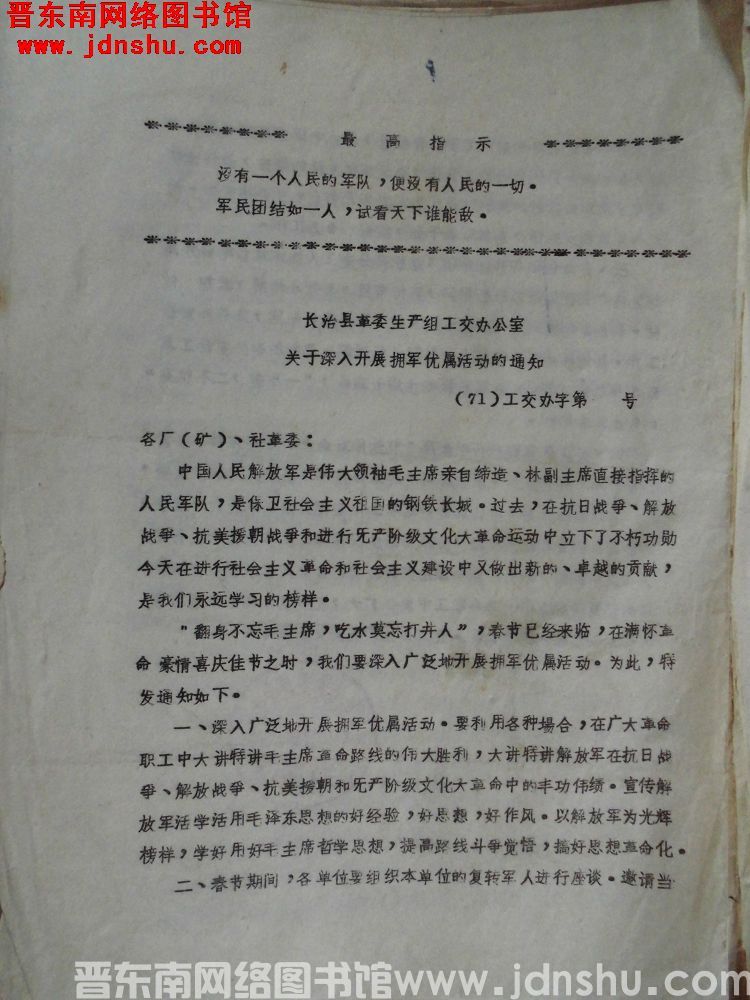 晋东南网络图书馆
www.jdnshu.com
最高指示
没有一个人民的军队，便没有人民的一切。
军民团结如一人，试看天下谁能敌。
长治县革委生产组工交办公室
关于深入开展拥军优属活动的通知
（71）工交办字第 号
各厂（矿）、社革委：
中国人民解放军是伟大领袖毛主席亲自缔造、林副主席直接指挥的
人民军队，是保卫社会主义祖国的钢铁长城。过去，在抗日战争、解放
战争、抗美援朝战争和进行无产阶级文化大革命运动中立下了不朽功勋
今天在进行社会主义革命和社会主义建设中又做出新的、卓越的贡献，
是我们永远学习的榜样。
"翻身不忘毛主席，吃水莫忘打井人"，春节已经来临，在满怀革
命 豪情喜庆佳节之时，我们要深入广泛地开展拥军优属活动。为此，特
发通知如下。
一、深入广泛地开展拥军优属活动。要利用各种場合，在广大革命
职工中大讲特讲毛主席革命路线的伟大胜利，大讲特讲解放军在抗日战
争、解放战争、抗美援朝和无产阶级文化大革命中的丰功伟绩。宣传解
放军活学活用毛泽东思想的好经验，好思想，好作风。以解放军为光辉
榜样，学好用好毛主席哲学思想，提高路线斗争觉悟，搞好思想革命化。
二、春节期间，各单位要组织本单位的复转军人进行座谈。邀请当
晋东南网络图书馆www.jdnshu.com